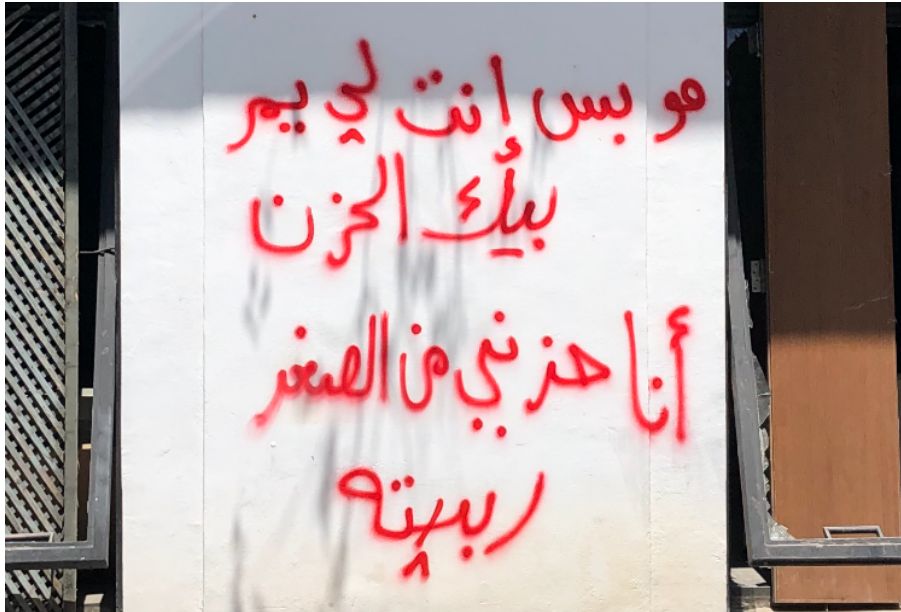 هو بس انت لي يمر
بيك الحزن
أنا حزني من الصغر
ربيته